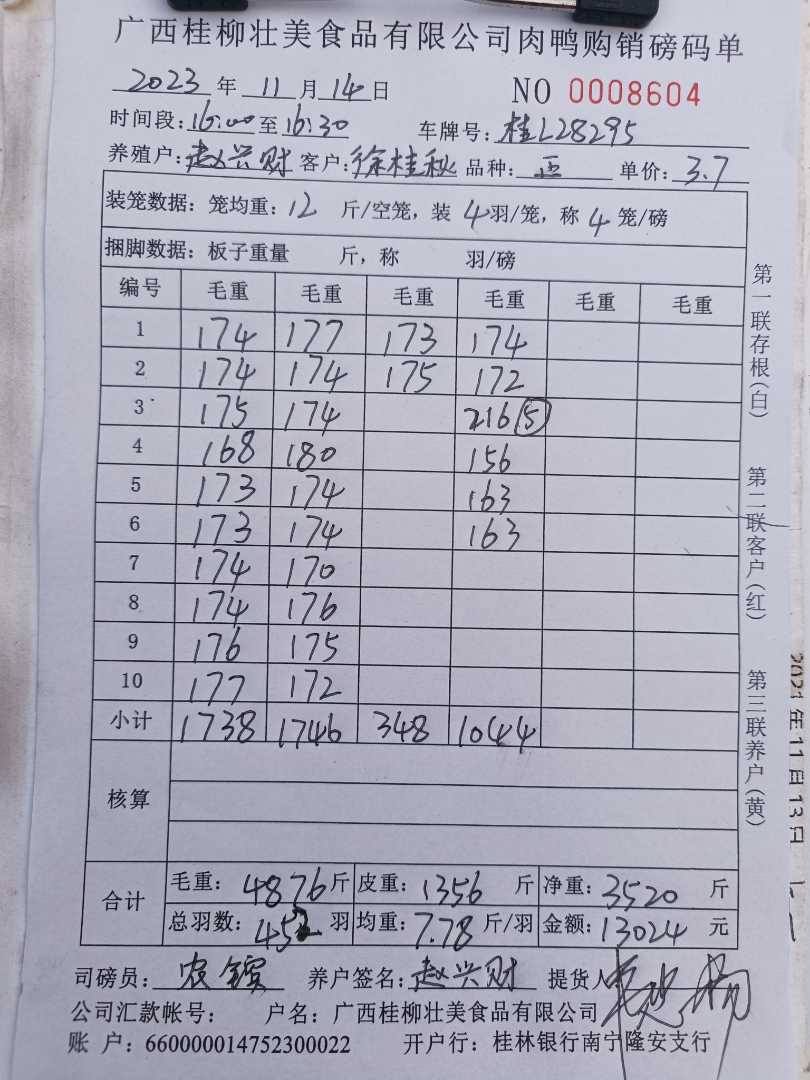 广西桂柳壮美食品有限公司肉鸭购销磅码单
2023 年 11 月 14 日 NO 0008604
时间段: 16:00 至 16:30 车牌号: 桂L28295
养殖户: 赵兴财 客户: 徐桂秋 品种: 正 单价: 3.7
装笼数据: 笼均重: 12 斤/空笼, 装 4 羽/笼, 称 4 笼/磅
捆脚数据: 板子重量 斤, 称 羽/磅
编号 毛重 毛重 毛重 毛重 毛重 毛重
1 174 177 173 174
2 174 174 175 172
3 175 174 216 (5)
4 168 180 156
5 173 174 163
6 173 174 163
7 174 170
8 174 176
9 176 175
10 177 172
小计 1738 1746 348 1044
核算
合计
毛重: 4876 斤 皮重: 1356 斤 净重: 3520 斤
总羽数: 452 羽 均重: 7.78 斤/羽 金额: 13024 元
司磅员: 农 养户签名: 赵兴财 提货人
公司汇款帐号: 户名: 广西桂柳壮美食品有限公司
账 户: 660000014752300022 开户行: 桂林银行南宁隆安支行
第一联存根(白)
第二联客户(红)
第三联养户(黄)
2021年11月13日